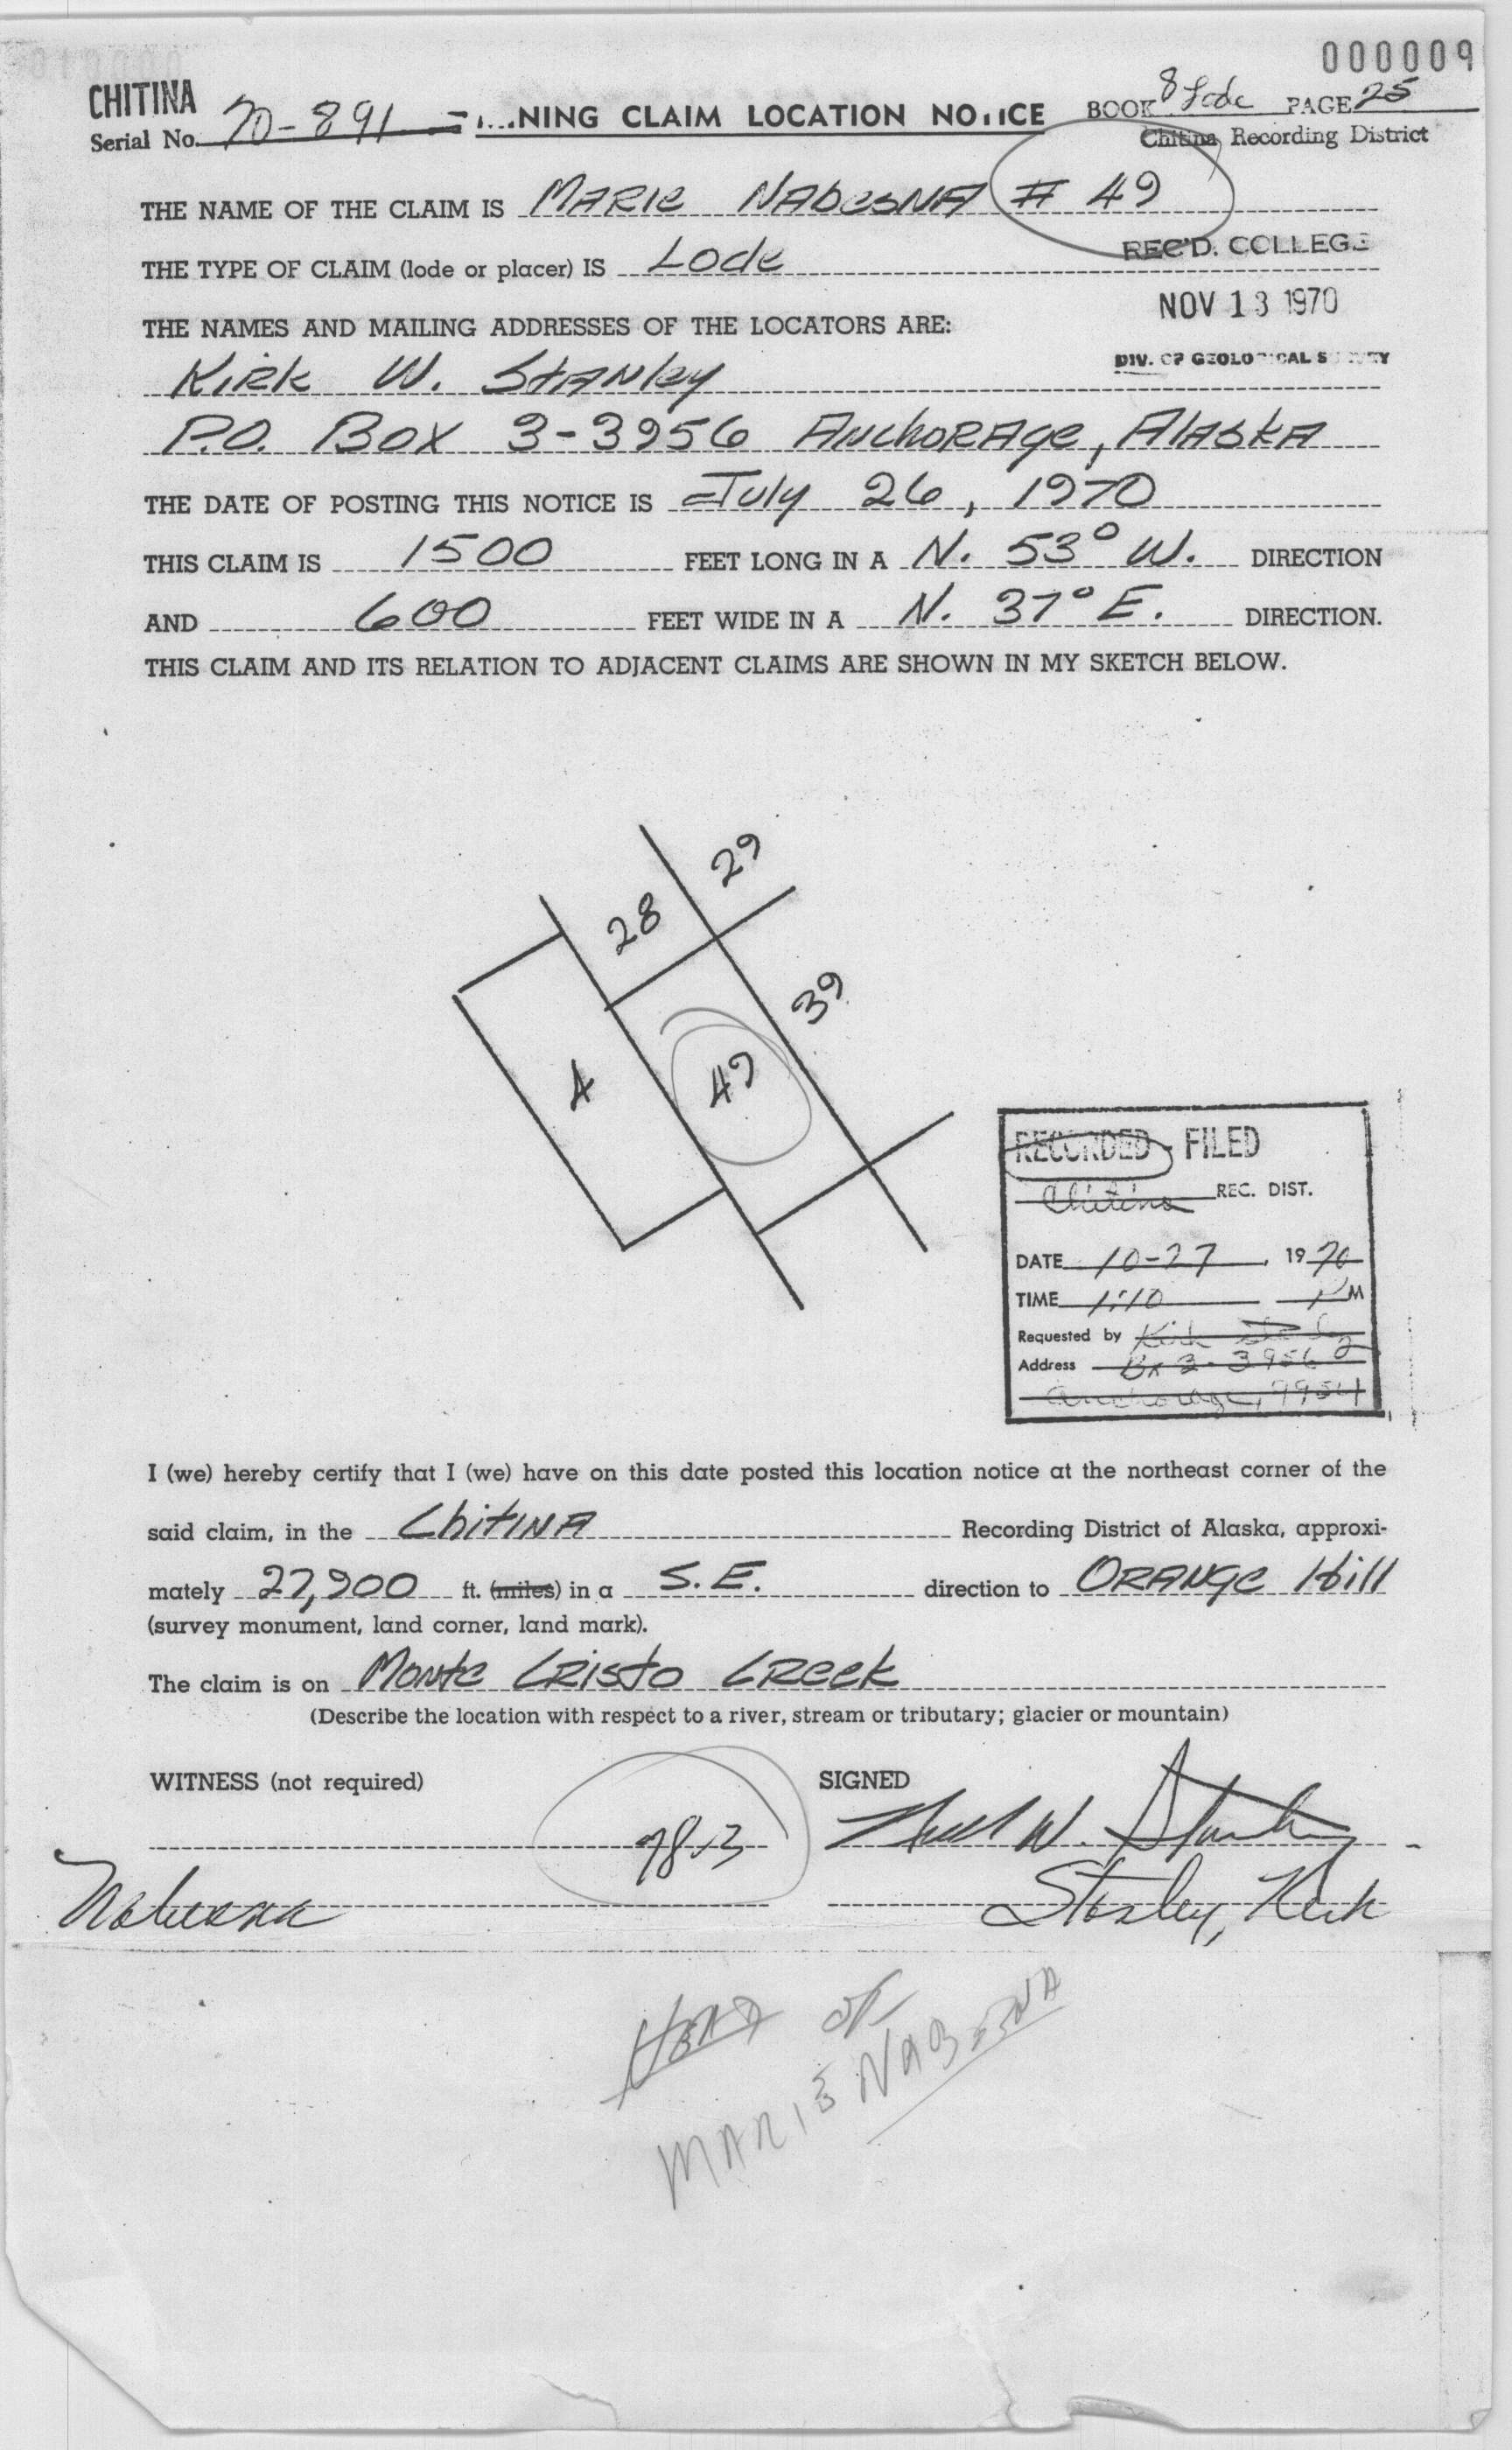 000009
CHITINA
Serial No. 70-891
NING CLAIM LOCATION NOTICE
BOOK 8 Lode PAGE 25
Chitina Recording District
THE NAME OF THE CLAIM IS MARIE NAbesNA # 49
THE TYPE OF CLAIM (lode or placer) IS Lode
REC'D. COLLEGE
NOV 13 1970
THE NAMES AND MAILING ADDRESSES OF THE LOCATORS ARE:
DIV. OF GEOLOGICAL SURVEY
Kirk W. Stanley
P.O. Box 3-3956 Anchorage, Alaska
THE DATE OF POSTING THIS NOTICE IS July 26, 1970
THIS CLAIM IS 1500 FEET LONG IN A N. 53° W. DIRECTION
AND 600 FEET WIDE IN A N. 37° E. DIRECTION.
THIS CLAIM AND ITS RELATION TO ADJACENT CLAIMS ARE SHOWN IN MY SKETCH BELOW.
29
28
39
49
4
RECORDED - FILED
Chitina REC. DIST.
DATE 10-27, 1970
TIME 1:10 PM
Requested by Kirk Stanley
Address Bx 3-3956
Anchorage,
I (we) hereby certify that I (we) have on this date posted this location notice at the northeast corner of the
said claim, in the Chitina Recording District of Alaska, approxi-
mately 27,900 ft. (miles) in a S.E. direction to Orange Hill
(survey monument, land corner, land mark).
The claim is on Monte Cristo Creek
(Describe the location with respect to a river, stream or tributary; glacier or mountain)
WITNESS (not required)
SIGNED
W. Stanley
Nabesna
Stanley, Kirk
OF
MARIE NABESNA